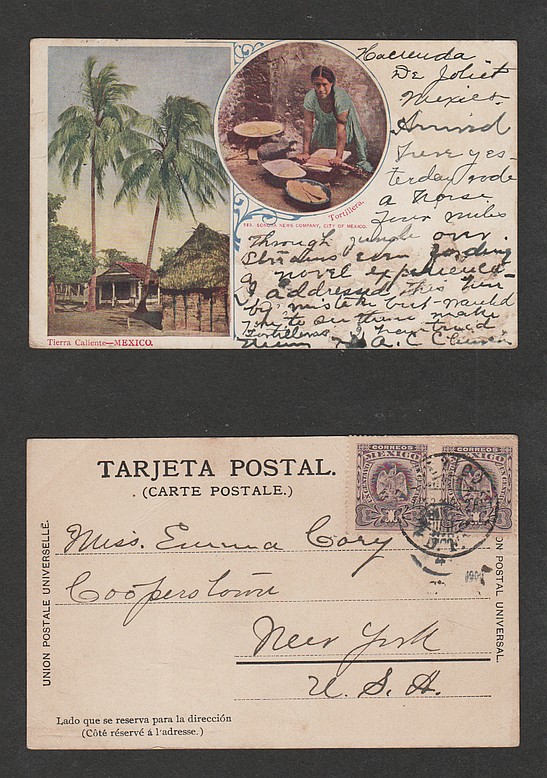 Hacienda
De Joliet
Mexico.
Arrived
here yes-
terday rode
a horse
four miles
through jungle over
a novel experience
I addressed this
by mistake but would
try to make
Tortilleras
A. C.
Tortillera.
145. SONORA NEWS COMPANY, CITY OF MEXICO.
Tierra Caliente—MEXICO.
TARJETA POSTAL.
(CARTE POSTALE.)
CORREOS
MEXICO
CORREOS
MEXICO
UNION POSTALE UNIVERSELLE.
ON POSTAL UNIVERSAL.
Miss. Emma Cory
Cooperstown
New York
U. S. A.
Lado que se reserva para la dirección
(Côté réservé á l'adresse.)